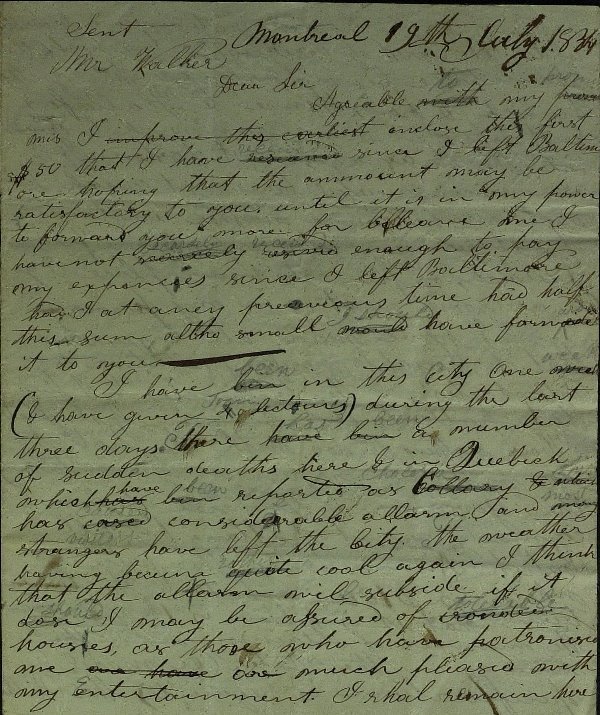 Sent Montreal 19th July 1834
Mr Walker
Dear Sir
Agreable with my
mis I improve this earliest enclose the first
$50 that I have since I left Baltim
ore hoping that the ammount may be
satisfactory to you, until it is in my power
to forward you more, for believe me I
have not scarcely enough to pay
my expences since I left Baltimore
had I at aney preavious time had half
this sum, altho small would have forw
it to you
I have ben in this city one week
(I have given 4 lectures) during the last
three days there have ben a number
of sudden deaths here & in Quebeck
which have ben reported as Collary &
has cased considerable allarm and many
strangers have left the City, the weather
having becum quite cool again I think
that the allarm will subside, if it
dos, I may be assured of crouded
houses, as those who have patronised
me are much pleased with
my entertainment. I shal remain here